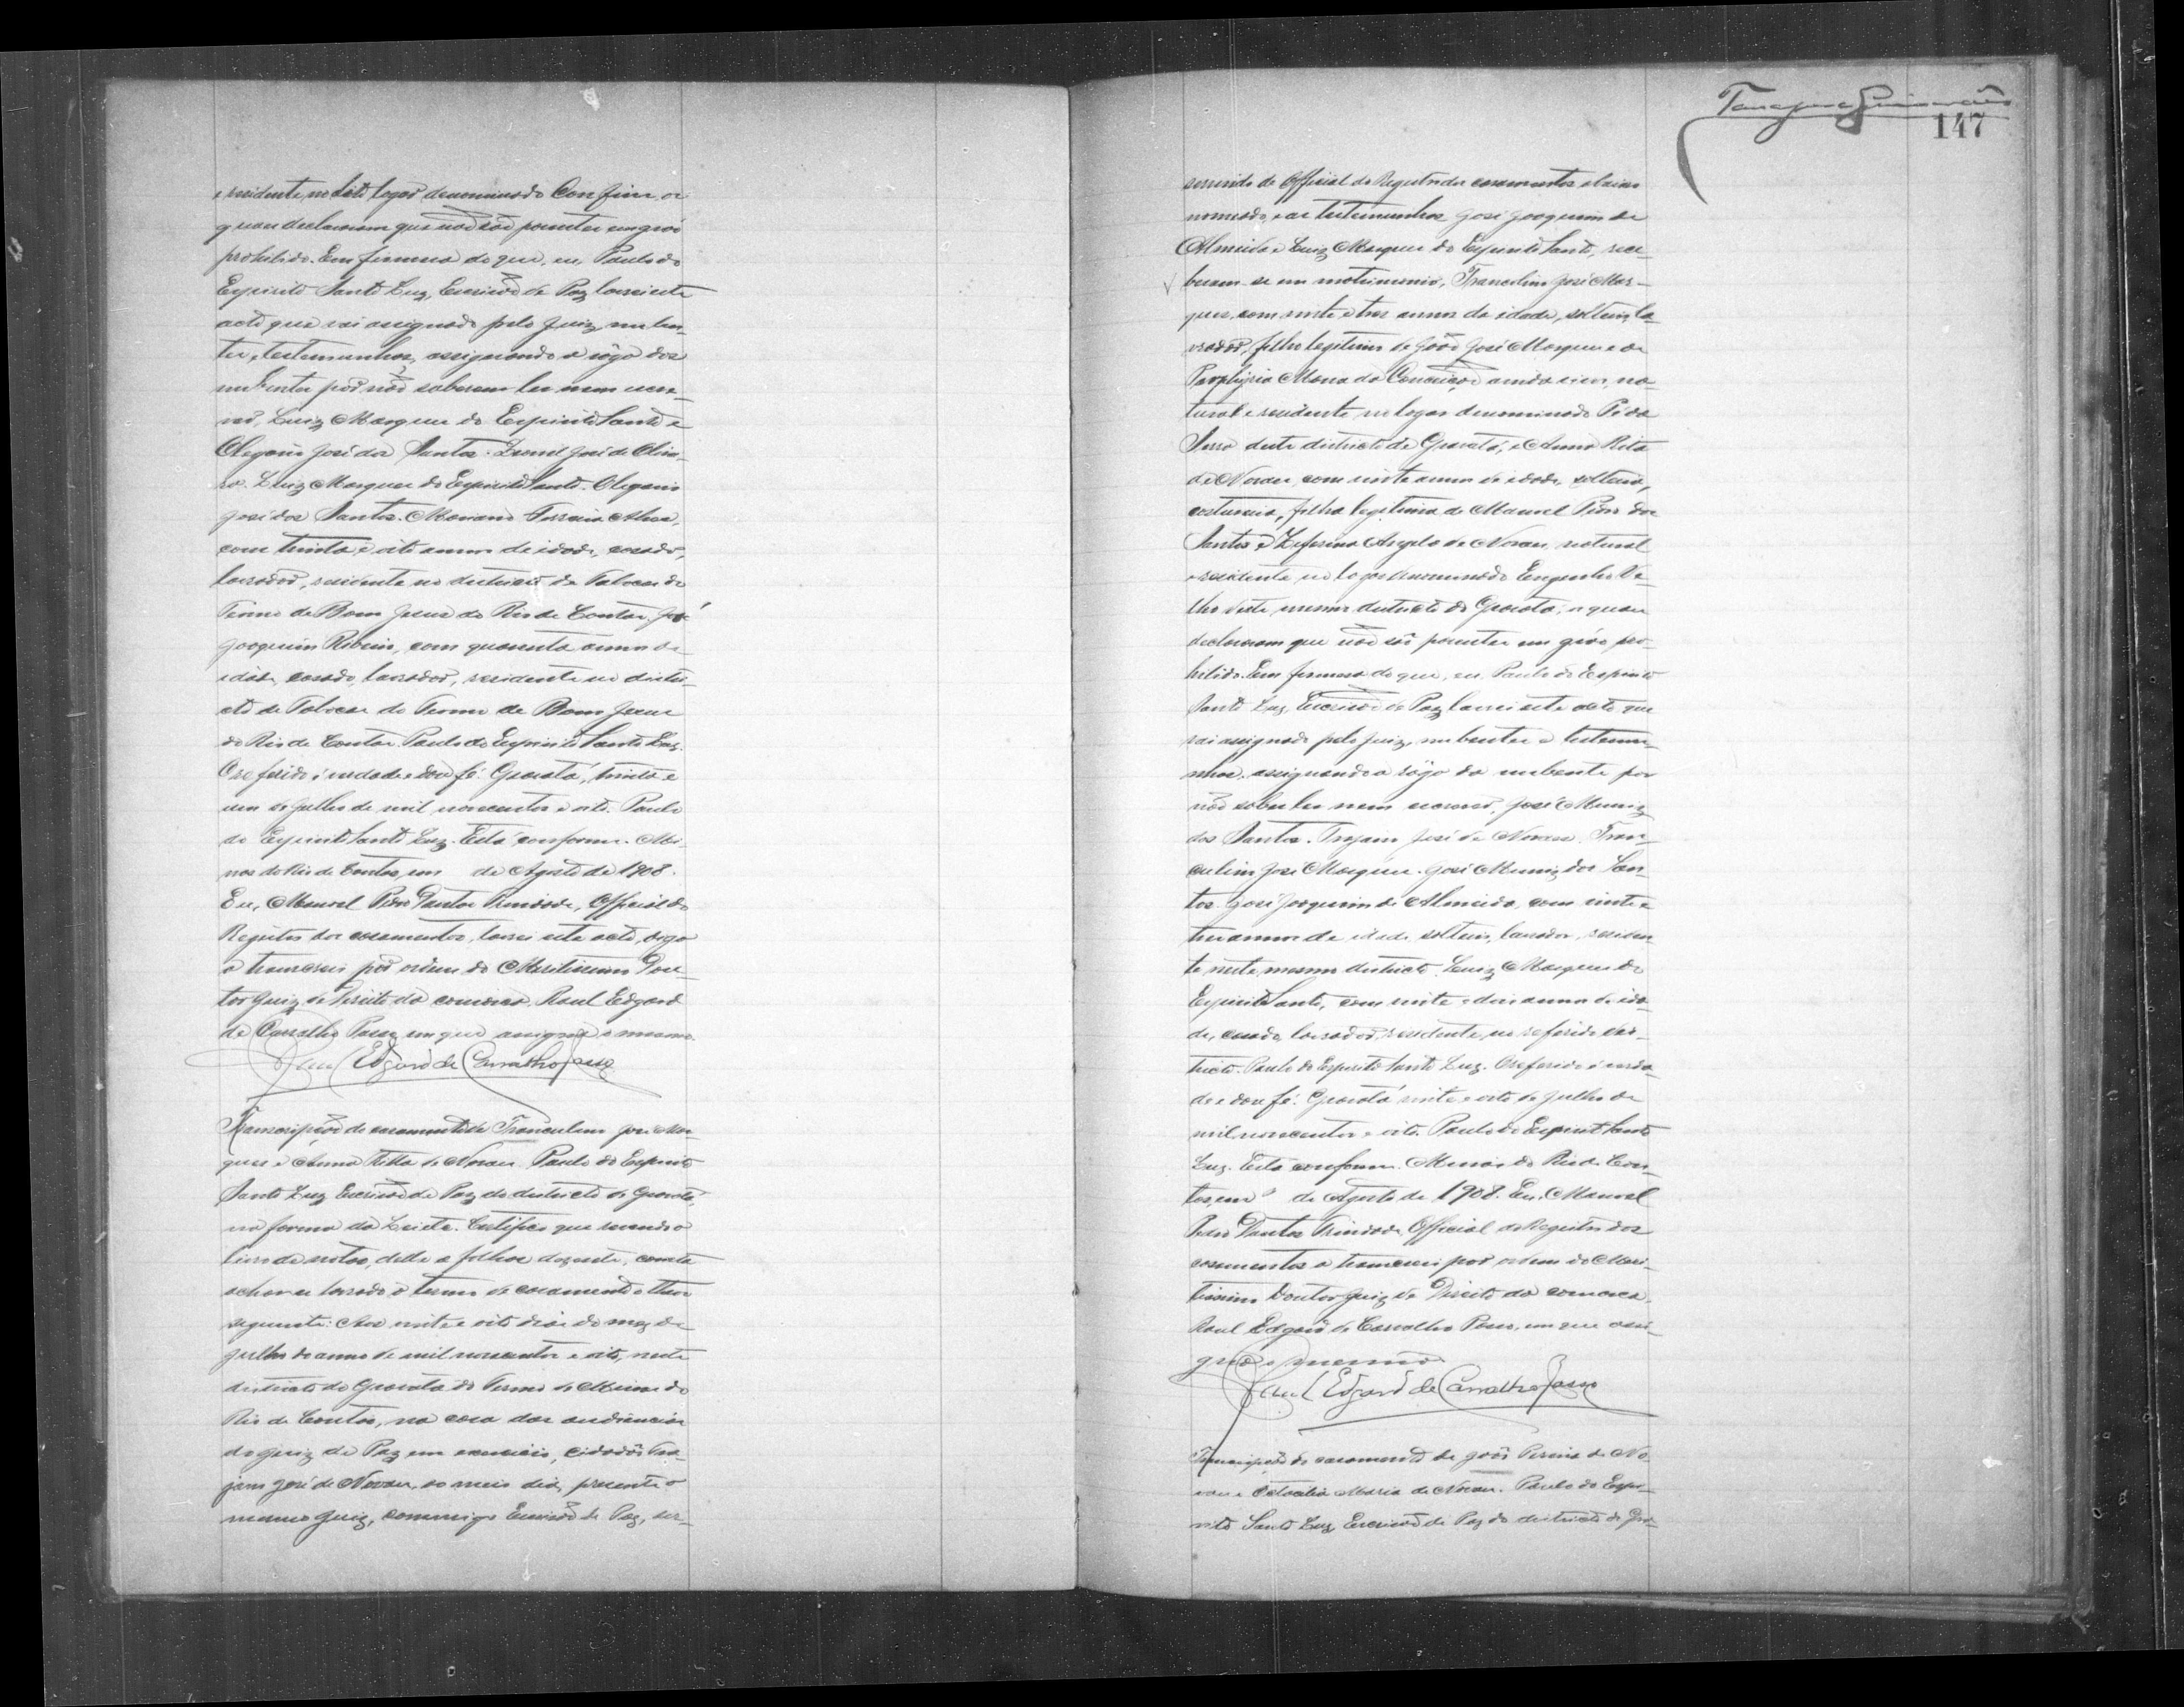 e residente no dito logar denominado Confins, os
quaes declararam que não são parentes em gráo
prohibido. Em firmesa do que, eu, Paulo do
Espirito Santo Luz, Escrivão de Paz lavrei este
acto que vai assignado pelo Juiz, nuben-
tes, testemunhas, assignando a rôgo dos
nubentes por não saberem ler nem escre-
ver, Luiz Marques do Espirito Santo e
Olegario José dos Santos. José de Olivei-
ra. Luiz Marques do Espirito Santo. Olegario
José dos Santos. Mariano Ferreira Alves,
com trinta e oito annos de idade, casado,
lavrador, residente no districto de Tabocas do
Termo de Bom Jesus do Rio de Contas. José
Joaquim Ribeiro, com quarenta annos de
idade, casado, lavrador, residente no distri-
cto de Tabocas do Termo de Bom Jesus
do Rio de Contas. Paulo do Espirito Santo Luz.
O referido é verdade e dou fé. Gravatá, trinta e
um de Julho de mil novecentos e oito. Paulo
do Espirito Santo Luz. Está conforme. Mi-
nas do Rio de Contas, em de Agosto de 1908.
Eu, Manoel Pedro Dantas Trindade, Official do
Registro dos casamentos, lavrei este acto, digo
o transcrevi por ordem do Meritissimo Dou-
tor Juiz de Direito da comarca, Raul Edgard
de Carvalho Passos, em que assigna o mesmo.
Raul Edgard de Carvalho Passos
Transcripção do casamento de Tranculino José Mar-
ques e Anna Ritta de Novaes. Paulo do Espirito
Santo Luz Escrivão de Paz do districto de Gravatá,
na forma da Lei etc. Certifico que revendo o
livro de notas, delle a folhas dezesete, consta
achar-se lavrado o termo de casamento o theor
seguinte: Aos vinte e oito dias do mez de
Julho do anno de mil novecentos e oito, neste
districto de Gravatá do Termo de Minas do
Rio de Contas, na casa das audiencias
do Juiz de Paz em exercicio, cidadão Tra-
jano José de Novaes, ao meio dia, presente o
mesmo Juiz, commigo Escrivão de Paz, ser-
147
servindo de Official do Registro dos casamentos abaixo
nomeado, e as testemunhas José Joaquim de
Almeida e Luiz Marques do Espirito Santo, rece-
beram-se em matrimonio, Tranculino José Mar-
ques, com vinte e tres annos de idade, solteiro, la-
vrador, filho legitimo de João José Marques e de
Porphiria Maria da Conceição, ainda vivos, na-
tural e residente no logar denominado Pé da
Serra deste districto de Gravatá, e Anna Rita
de Novaes, com vinte annos de idade, solteira,
costureira, filha legitima de Manoel Pedro dos
Santos e Zeferina Angela de Novaes, natural
e residente no logar denominado Engenho Ve-
lho deste mesmo districto de Gravatá; os quaes
declararam que não são parentes em gráo pro-
hibido. Em firmesa do que, eu, Paulo do Espirito
Santo Luz, Escrivão de Paz lavrei este acto que
vai assignado pelo Juiz, nubentes e testemu-
nhas, assignando a rôgo da nubente por
não saber ler nem escrever, José Muniz
dos Santos. Trajano José de Novaes. Tran-
culino José Marques. José Muniz dos San-
tos. José Joaquim de Almeida, com vinte e
tres annos de idade solteiro, lavrador, residen-
te neste mesmo districto. Luiz Marques do
Espirito Santo, com vinte e dois annos de ida-
de, casado, lavrador, residente no referido dis-
tricto. Paulo do Espirito Santo Luz. O referido é verda-
de e dou fé. Gravatá vinte e oito de Julho de
mil novecentos e oito. Paulo do Espirito Santo
Luz. Está conforme. Minas do Rio de Con-
tas, em de Agosto de 1908. Eu, Manoel
Pedro Dantas Trindade Official do Registro dos
casamentos o transcrevi por ordem do Meri-
tissimo Doutor Juiz de Direito da comarca,
Raul Edgard de Carvalho Passos, em que assi-
gna o mesmo.
Raul Edgard de Carvalho Passos
Transcripção do casamento de João Pereira de No-
vaes e Maria de Novaes. Paulo do Espi-
rito Santo Luz, Escrivão de Paz do districto de Gra-